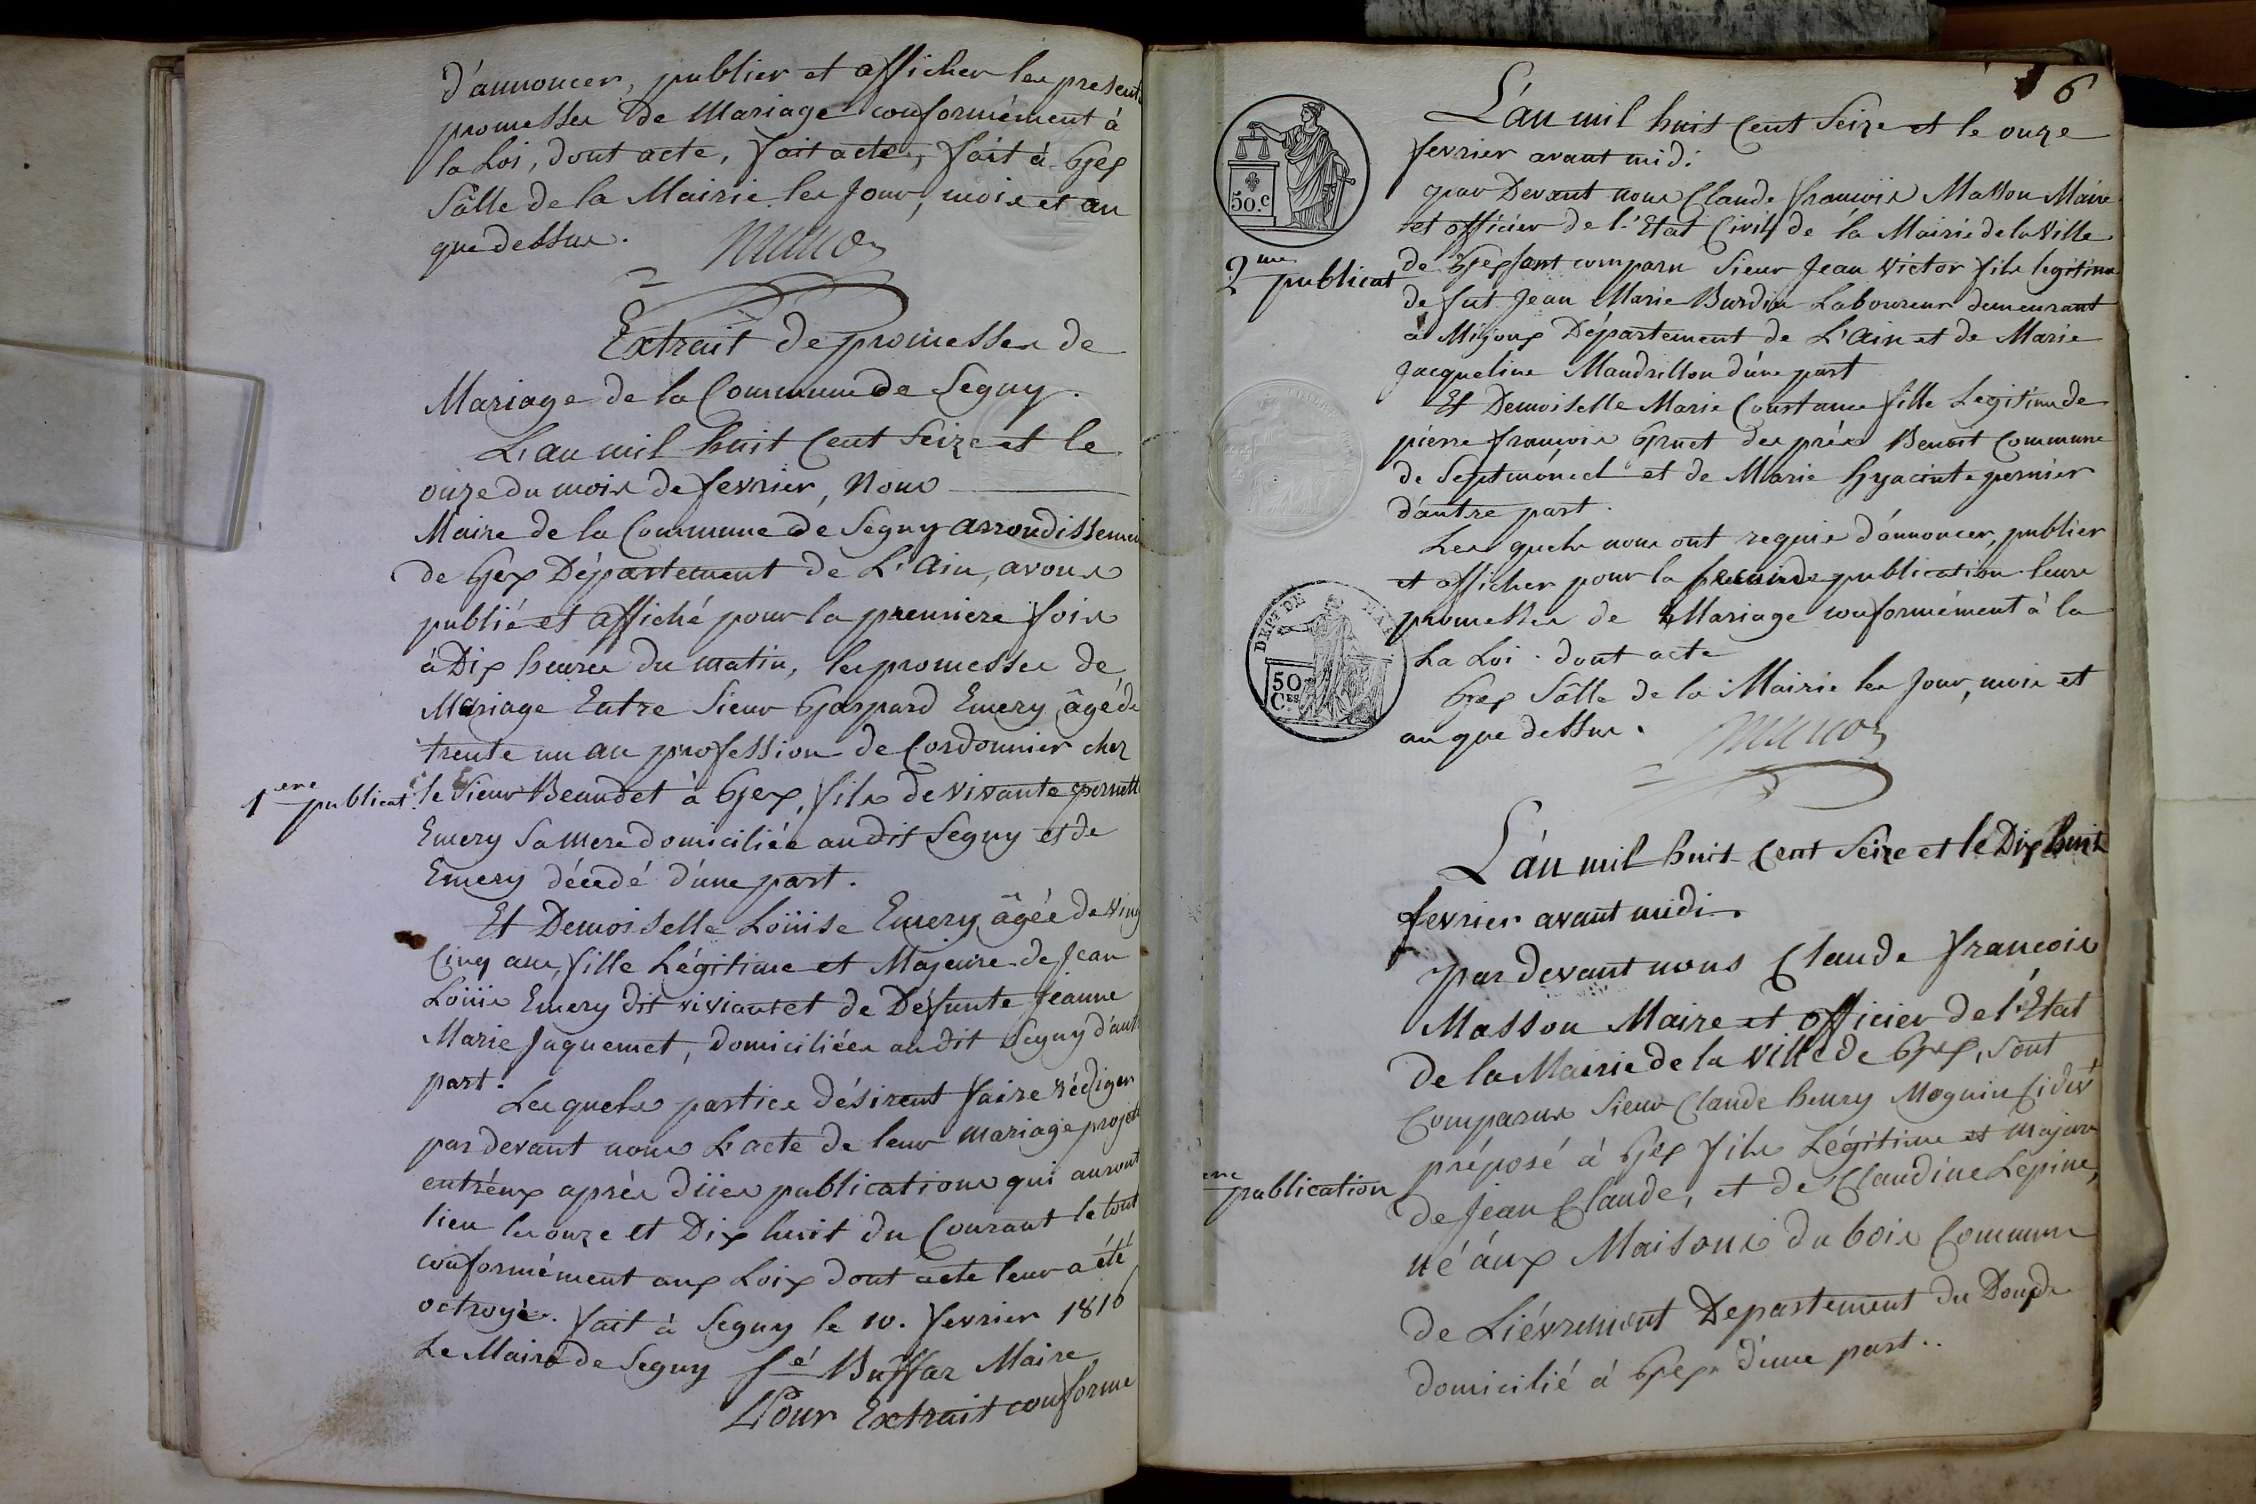 d'annoncer, publier et afficher les present
promesses de Mariage conformément à
la Loi, dont acte, fait acte, fait à Gex
Sâlle de la Mairie les Jour, mois et an
que dessus.
Extrait de promesses de
Mariage de la Commune de Segny.
L'an mil huit Cent Seize et le
onze du mois de fevrier, Nous
Maire de la Commune de Segny arrondissemen
de Gex Département de L'Ain, avons
publié et affiché pour la premiere fois
à Dix heures du matin, les promesses de
Mariage Entre Sieur Gaspard Emery âgé de
trente un an profession de Cordonnier chez
1ere publicat.
le Sieur Beaudet à Gex, fils de vivante pernett
Emery Sa mere domiciliée audit Segny et de
Emery décedé d'une part.
Et Demoiselle Loüise Emery âgée de ving
Cinq ans, fille Légitime et Majeure de Jean
Loüis Emery dit viviant et de Défunte Jeanne
Marie Juquemet, domiciliées audit Segny d'aut
part.
Lesquels parties désirent faire rédiger
par devant nous L'acte de leur mariage projet
entréux après düies publications qui auront
lieu les onze et Dix huit du Courant le tout
conformément aux Loix dont acte leur a été
octroyé. fait à Segny le 10. fevrier 1816
Le Maire de Segny Sé Buffaz Maire
Pour Extrait conforme
6
L'an mil huit Cent Seize et le onze
fevrier avant midi
par Devant nous Claude françois Masson Maire
et officier de l'Etat Civil de la Mairie de la Ville
2me publicat
de Gex sont comparu Sieur Jean Victor fils legitime
de fut Jean Marie Burdin Laboureur demeurant
à Mijoux Département de L'Ain et de Marie
Jacqueline Mandrillon d'une part
Et Demoiselle Marie Constance fille Legitime de
pierre françois Gruet des prés Benoit Commune
de Septmoncel et de Marie hyacinte pernier
d'autre part.
Les quels nous ont requis d'annoncer, publier
et afficher pour la seconde publication leurs
promesses de Mariage conformément à la
La Loi. dont acte
Gex Sâlle de la Mairie les Jour, mois et
an que dessus.
50.c
DEPT. DE L'AIN
50 Ces
L'an mil huit Cent Seize et le Dix huit
fevrier avant midi.
par devant nous Claude francois
Masson Maire et officier de l'Etat
de la Mairie de la ville de Gex, Sont
Comparus Sieur Claude henry Mognin
préposé à Gex fils Légitime et majeur
ere publication
de Jean Claude, et de Claudine Lepine,
né áux Maisons du bois Commune
de Liévremont Departement du Doubs
domicilié à Gex d'une part..